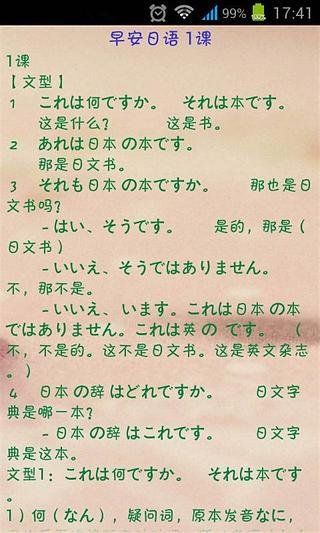 99% 17:41
早安日语 1课
1课
【文型】
1 これは何ですか。 それは本です。
这是什么? 这是书。
2 あれは日本 の本です。
那是日文书。
3 それも日本 の本ですか。 那也是日
文书吗?
-はい、そうです。 是的，那是（
日文书）
-いいえ、そうではありません。
不，那不是。
-いいえ、います。これは日本 の本
ではありません。これは英 の です。 （
不，不是的。这不是日文书。这是英文杂志
。）
4 日本 の辞 はどれですか。 日文字
典是哪一本?
-日本 の辞 はこれです。 日文字
典是这本。
文型1：これは何ですか。 それは本です
。
1）何（なん），疑问词，原本发音なに，